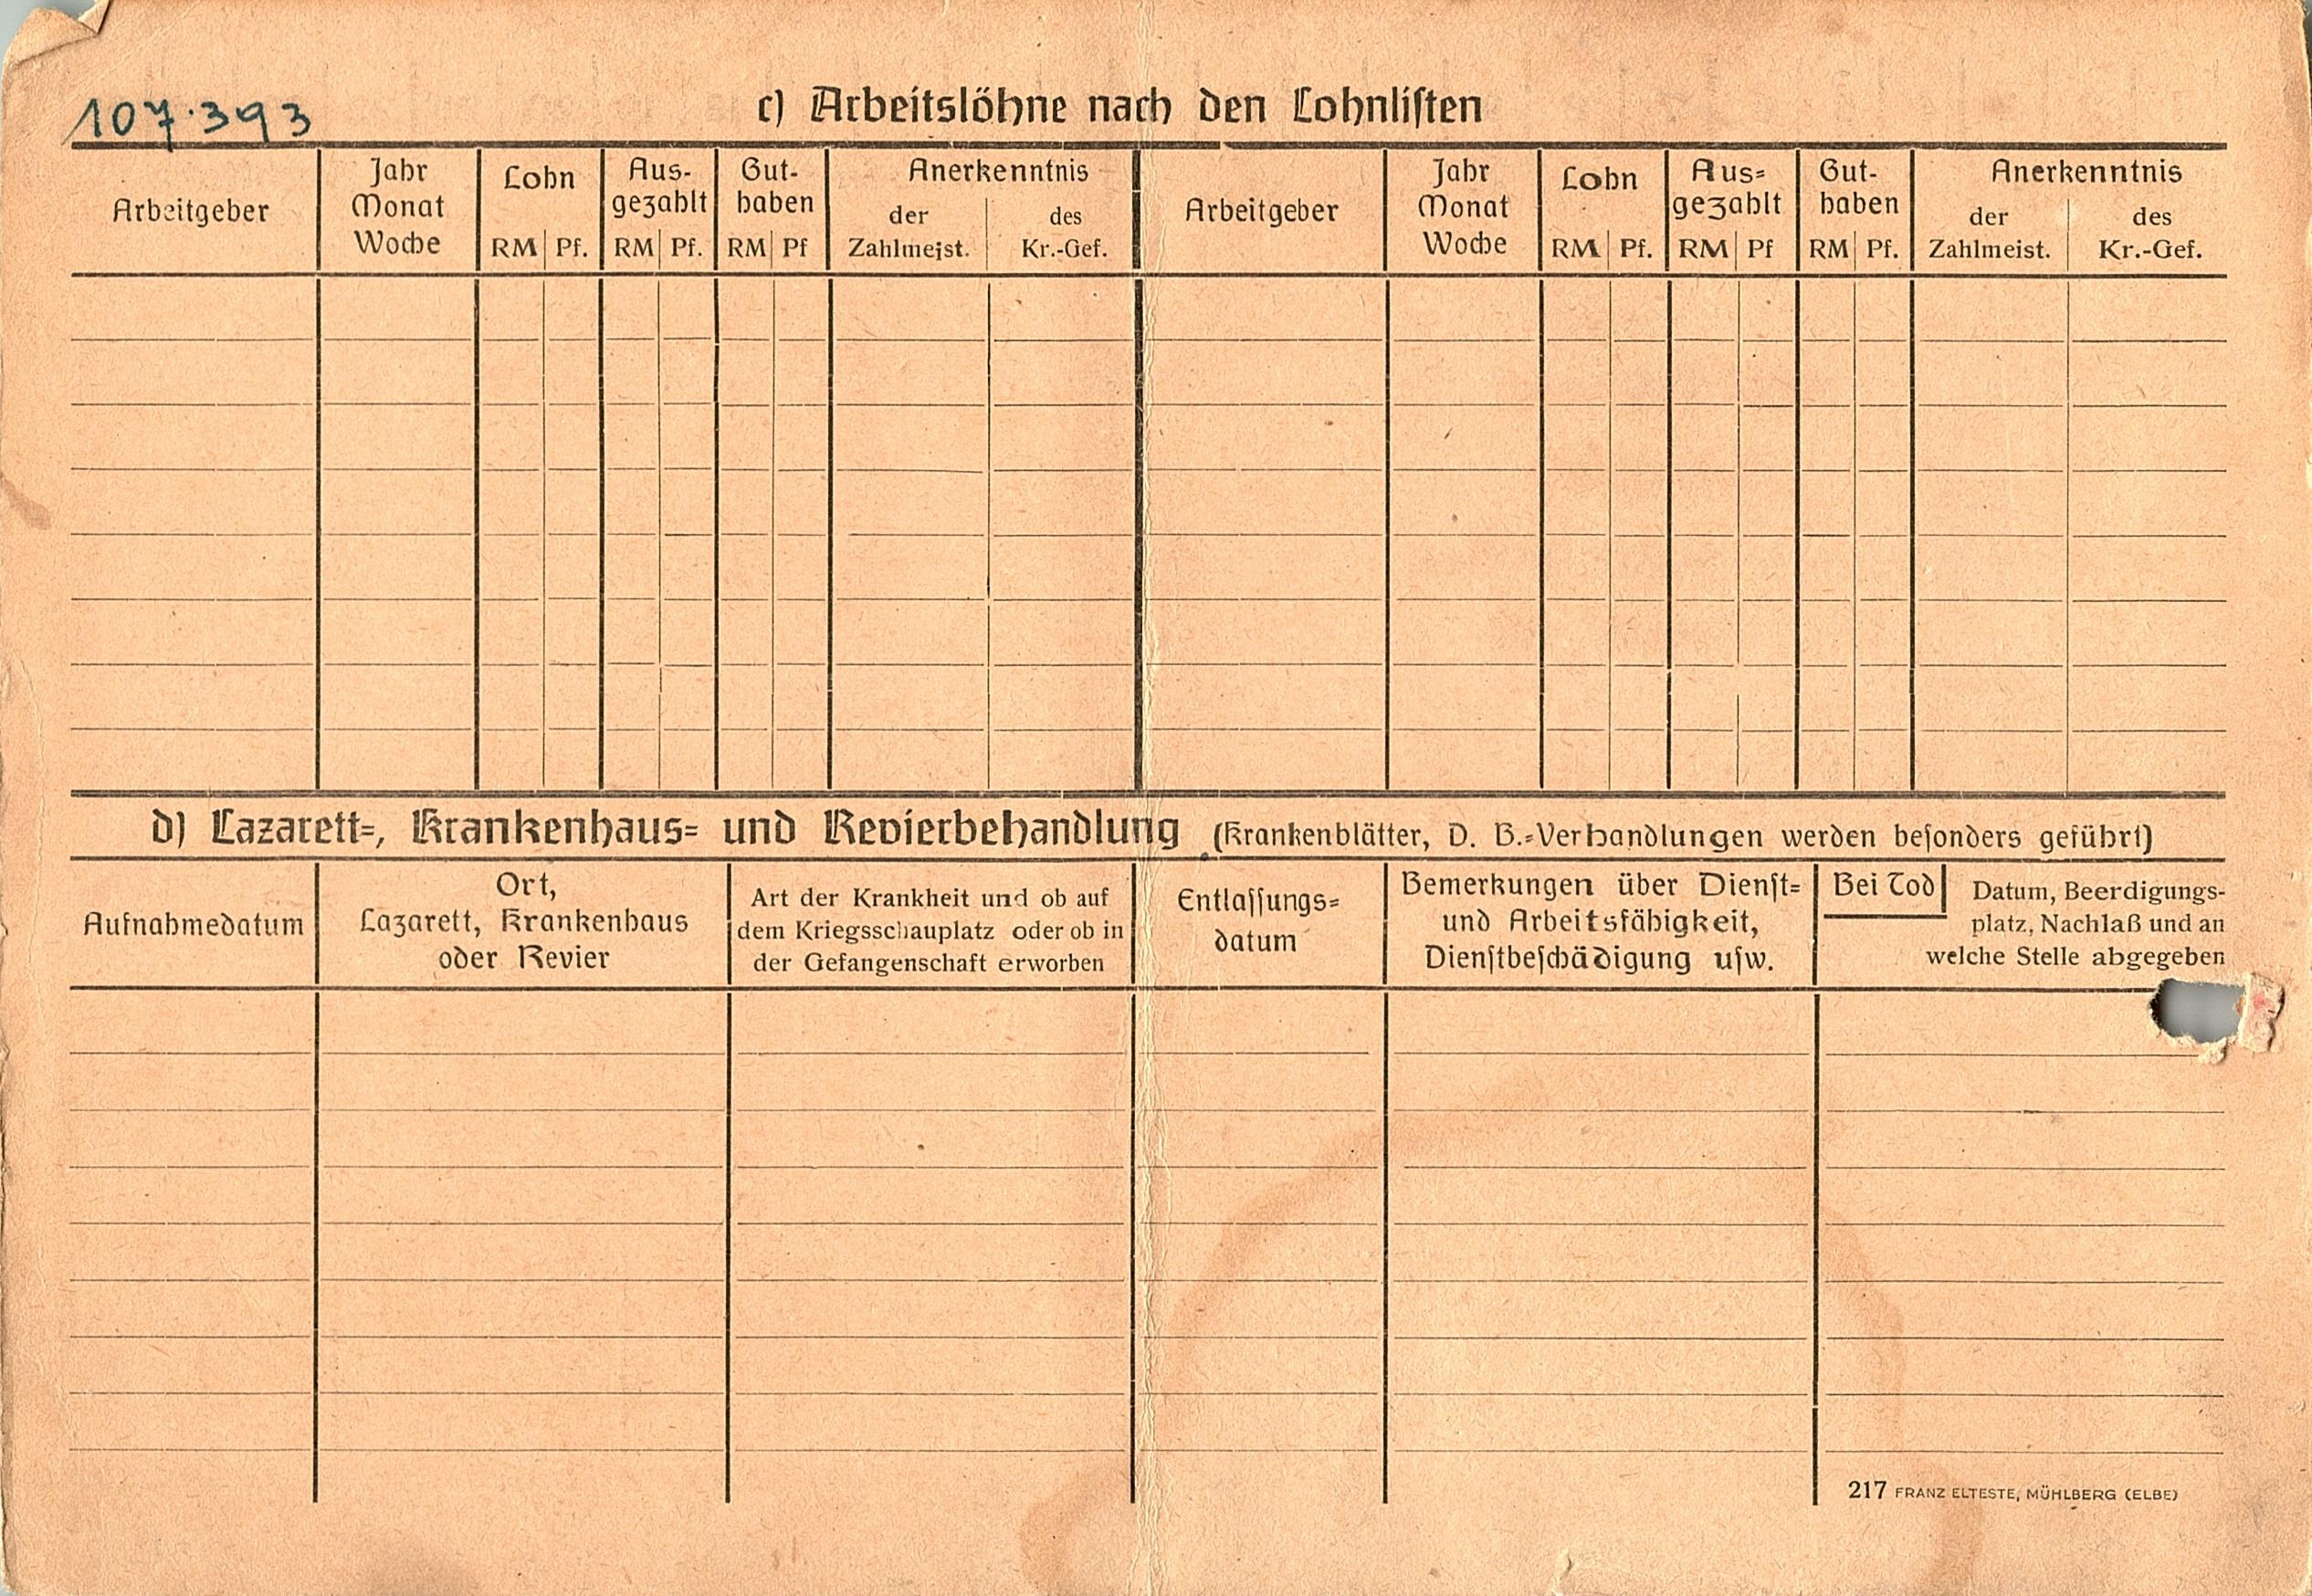 107.393
c) Arbeitslöhne nach den Lohnlisten
Arbeitgeber
Jahr
Monat
Woche
Lohn
RM Pf.
Aus-
gezahlt
RM Pf.
Gut-
haben
RM Pf
Anerkenntnis
der
Zahlmeist.
des
Kr.-Gef.
Arbeitgeber
Jahr
Monat
Woche
Lohn
RM Pf.
Aus=
gezahlt
RM Pf
Gut-
haben
RM Pf.
Anerkenntnis
der
Zahlmeist.
des
Kr.-Gef.
d) Lazarett=, Krankenhaus= und Revierbehandlung (Krankenblätter, D. B.=Verhandlungen werden besonders geführt)
Aufnahmedatum
Ort,
Lazarett, Krankenhaus
oder Revier
Art der Krankheit und ob auf
dem Kriegsschauplatz oder ob in
der Gefangenschaft erworben
Entlassungs=
datum
Bemerkungen über Dienst=
und Arbeitsfähigkeit,
Dienstbeschädigung usw.
Bei Tod
Datum, Beerdigungs-
platz, Nachlaß und an
welche Stelle abgegeben
217 FRANZ ELTESTE, MÜHLBERG (ELBE)